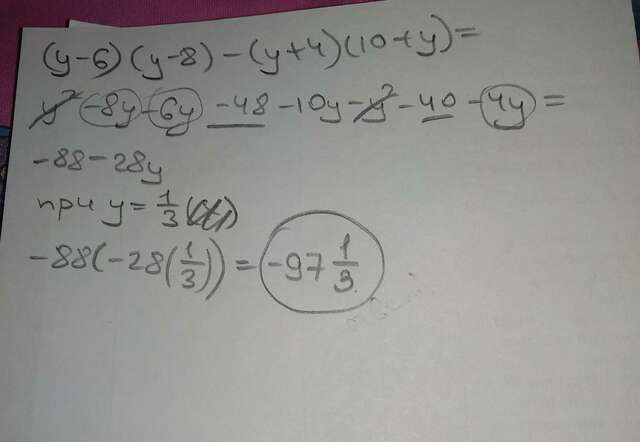 (y-6)(y-8)-(y+4)(10+y)=
y²-8y-6y-48-10y-y²-40-4y=
-88-28y
при y=1/3
-88(-28(1/3))=-97 1/3